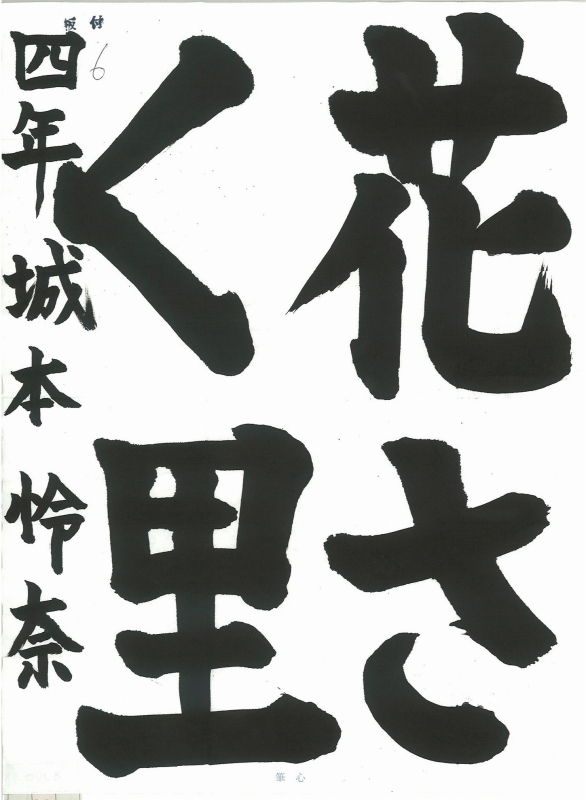 花さ
く里
四年 城本 怜奈
板付
6
心筆